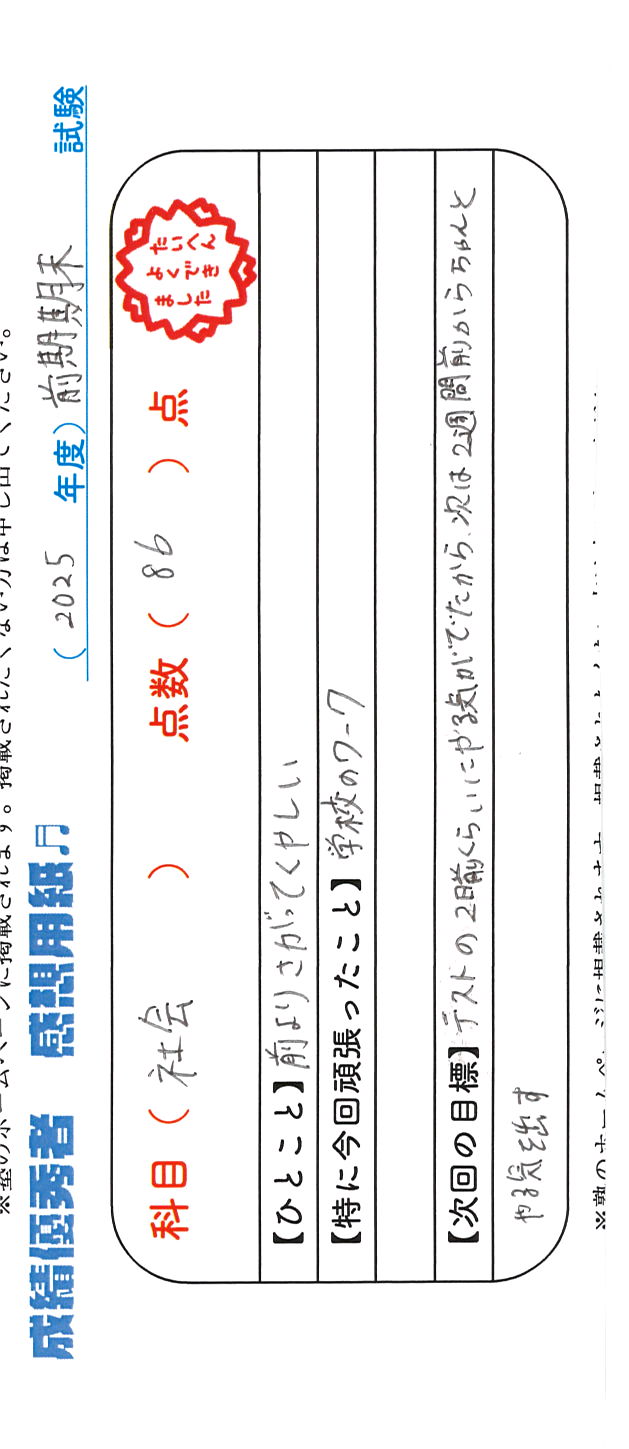 ※塾のホームページに掲載されます。掲載されたくない方は申し出てください。
成績優秀者 感想用紙♬
(2025 年度)前期期末 試験
科目(社会) 点数(86)点
たいへん
よくでき
ました
【ひとこと】前よりさがってくやしい
【特に今回頑張ったこと】学校のワーク
【次回の目標】テストの2日前くらいにやる気がでたから、次は2週間前からちゃんと
やる気を出す